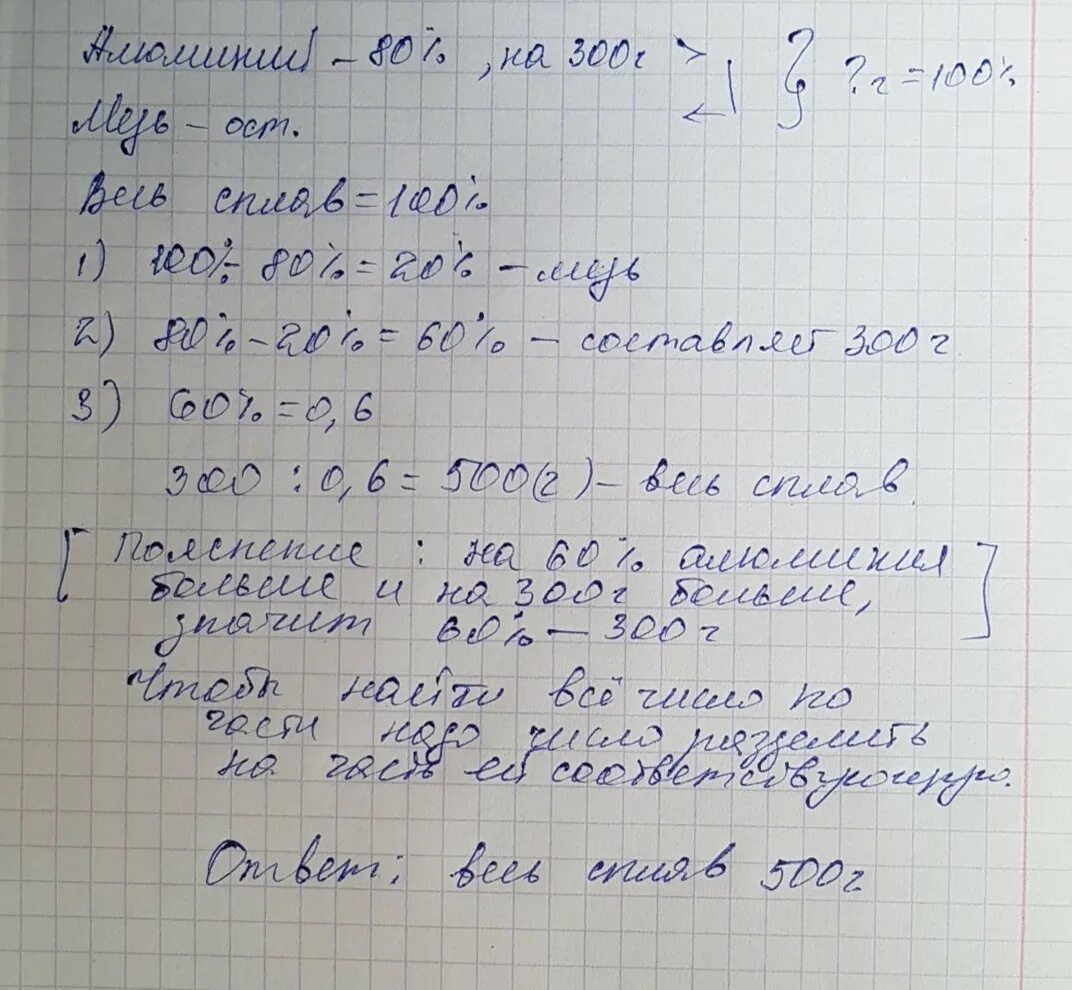 Алюминий – 80%, на 300г > } ?г = 100%
Медь – ост.
Весь сплав = 100%
1) 100% - 80% = 20% – медь
2) 80% – 20% = 60% – составляет 300г
3) 60% = 0,6
300 : 0,6 = 500(г) – весь сплав.
[ Пояснение : на 60% алюминия
больше и на 300г больше,
значит 60% – 300г ]
Чтобы найти всё число по
части надо число разделить
на часть ей соответствующую.
Ответ: весь сплав 500г